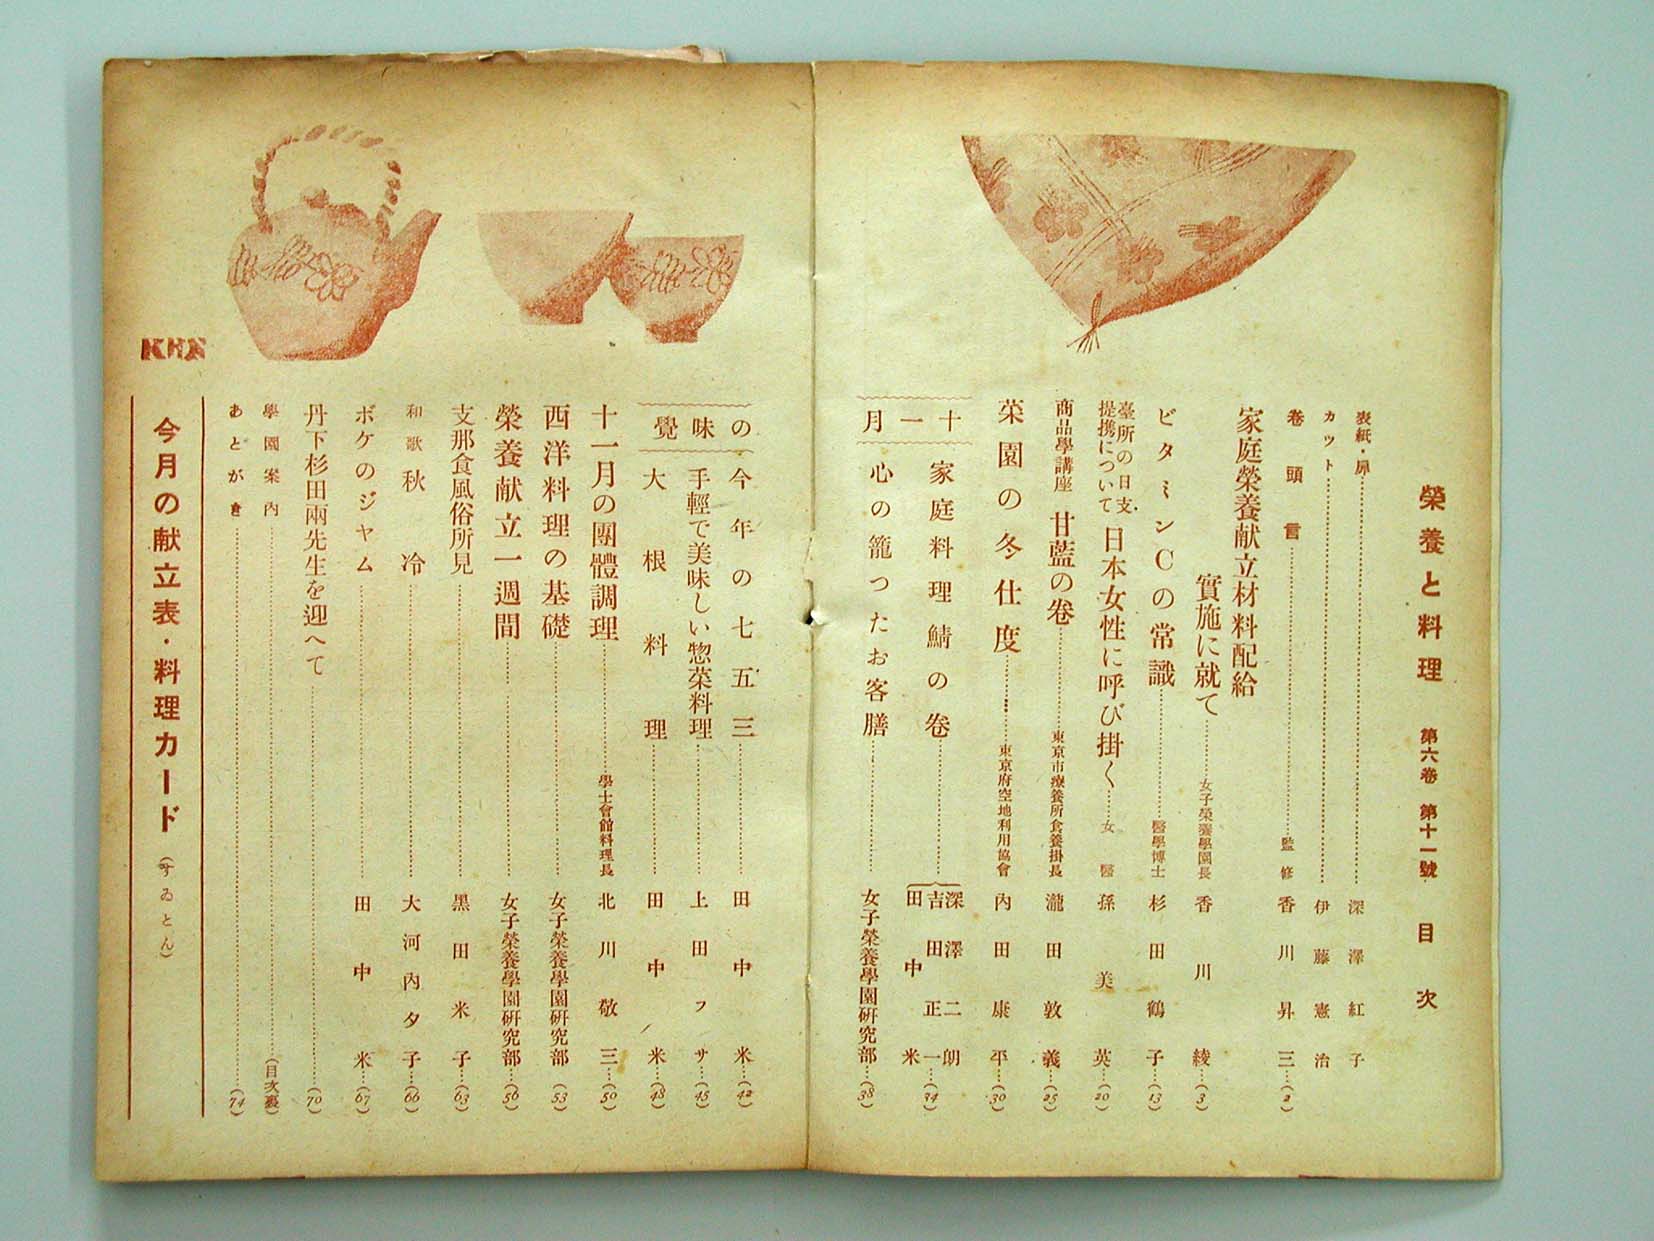 榮養と料理 第六卷 第十一號 目次
表紙・扉……深澤紅子
カット……伊藤憲治
卷頭言……監修 香川昇三…(2)
家庭榮養献立材料配給
實施に就て……女子榮養學園長 香川綾…(3)
ビタミンCの常識……醫學博士 杉田鶴子…(13)
臺所の日支提携について 日本女性に呼び掛く……女醫 孫美英…(20)
商品學講座 甘藍の卷……東京市療養所食養掛長 瀧田敦義…(25)
菜園の冬仕度……東京府空地利用協會 內田康平…(30)
十一月
家庭料理鯖の卷……深澤二朗 吉田正一 田中米…(34)
心の籠つたお客膳……女子榮養學園硏究部…(38)
の味覺
今年の七五三……田中米…(42)
手輕で美味しい惣菜料理……上田フサ…(45)
大根料理……田中米…(48)
十一月の團體調理……學士會館料理長 北川敬三…(50)
西洋料理の基礎……女子榮養學園硏究部…(53)
榮養献立一週間……女子榮養學園硏究部…(56)
支那食風俗所見……黑田米子…(63)
和歌 秋冷……大河內夕子…(66)
ボケのジヤム……田中米…(67)
丹下杉田兩先生を迎へて……(70)
學園案內……(目次裏)
あとがき……(74)
今月の献立表・料理カード (すゐとん)
KHN